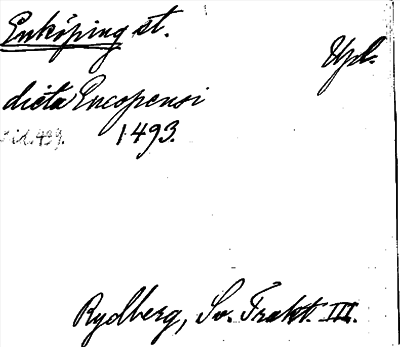 Enköping st.
Upl.
dicta Encopensi
sid. 439. 1493.
Rydberg, Sv. Trakt. III.